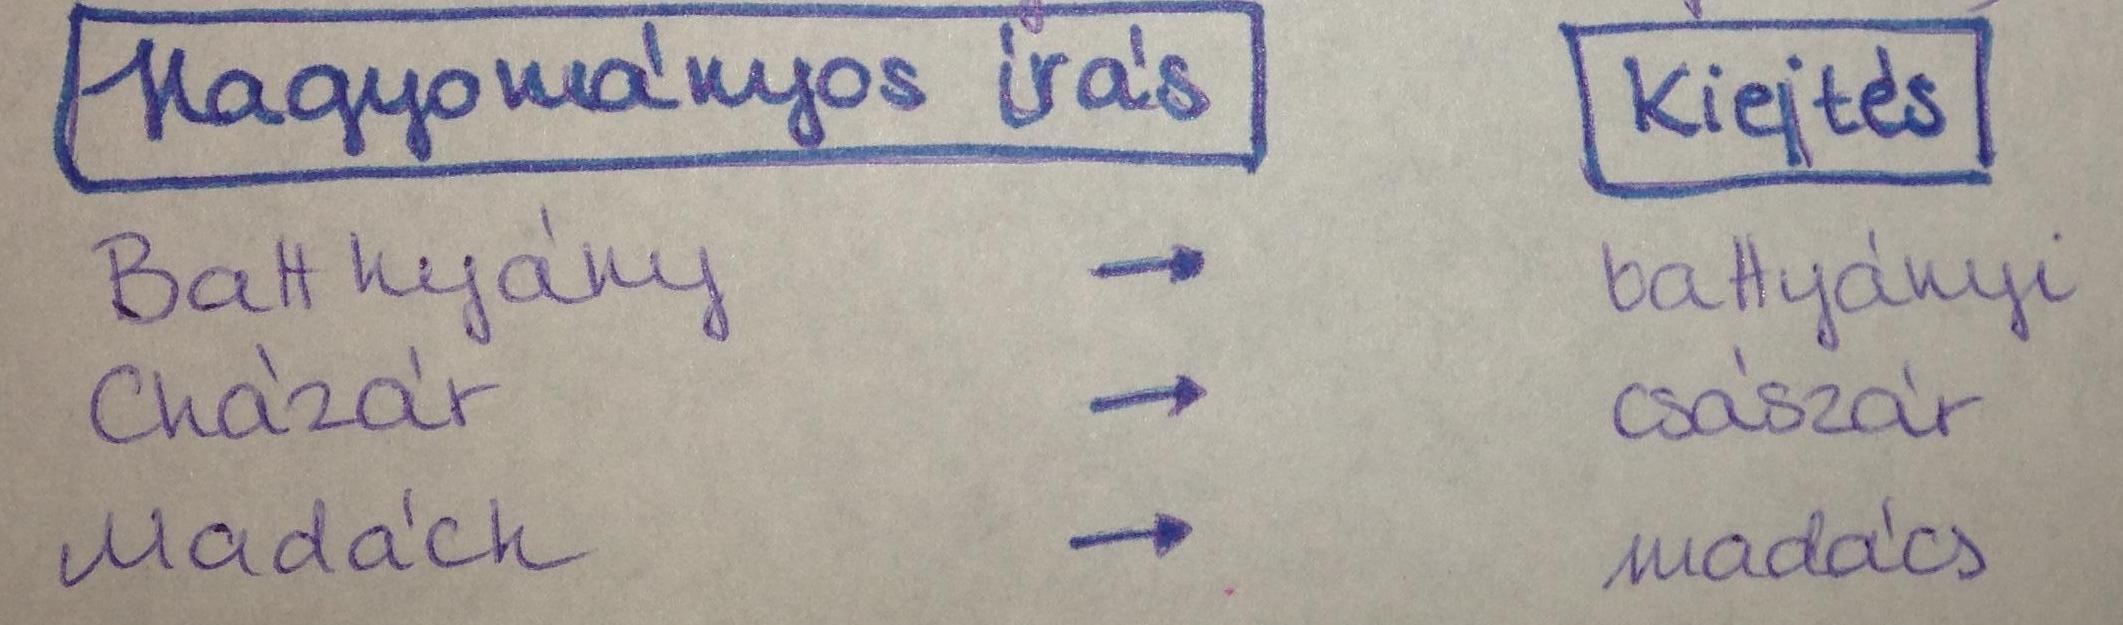 Hagyományos írás Kiejtés
Batthyány → battyányi
Cházár → császár
Madách → madács